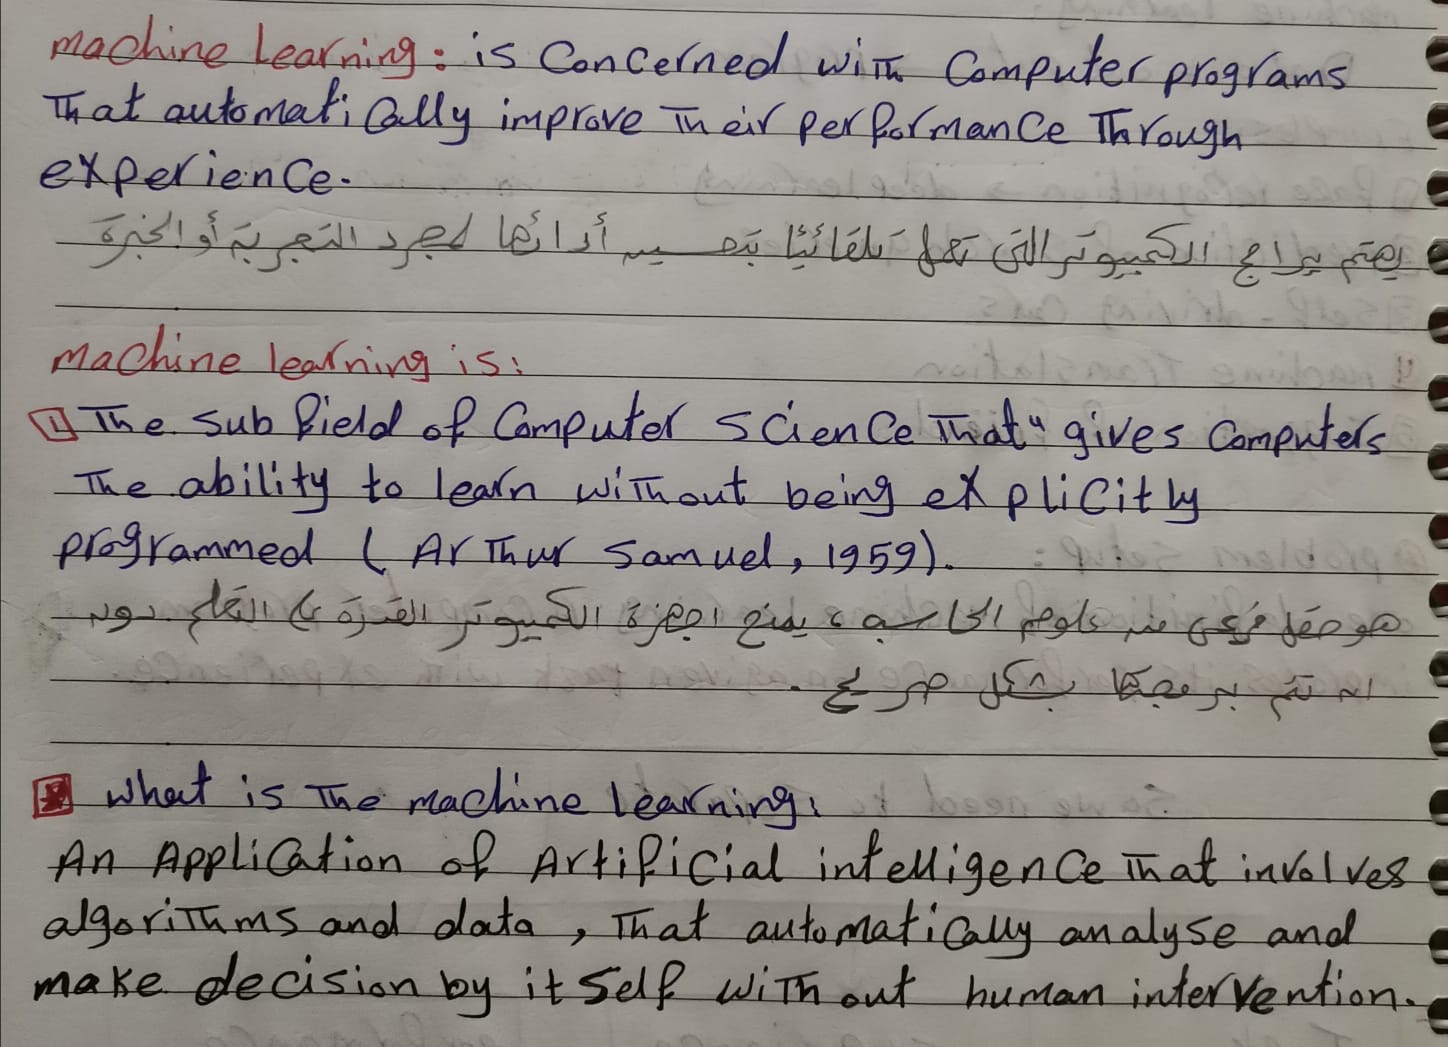 machine Learning: is Concerned with Computer programs
That automatically improve Their performance Through
experience.
يهتم براج الكمبيوتر التي تعمل تلقائيًا بتحسين أدائها لمجرد التجربة أو الخبرة
machine learning is:
1 The sub field of Computer science That " gives Computers
The ability to learn without being explicitly
programmed (Arthur Samuel, 1959).
هو حقل فرعي من علوم الحاسب يمنح اجهزة الكمبيوتر القدرة على التعلم دون
ان تتم برمجتها بشكل صريح.
what is The machine learning:
An Application of Artificial intelligence That involves
algorithms and data, That automatically analyse and
make decision by it self without human intervention.